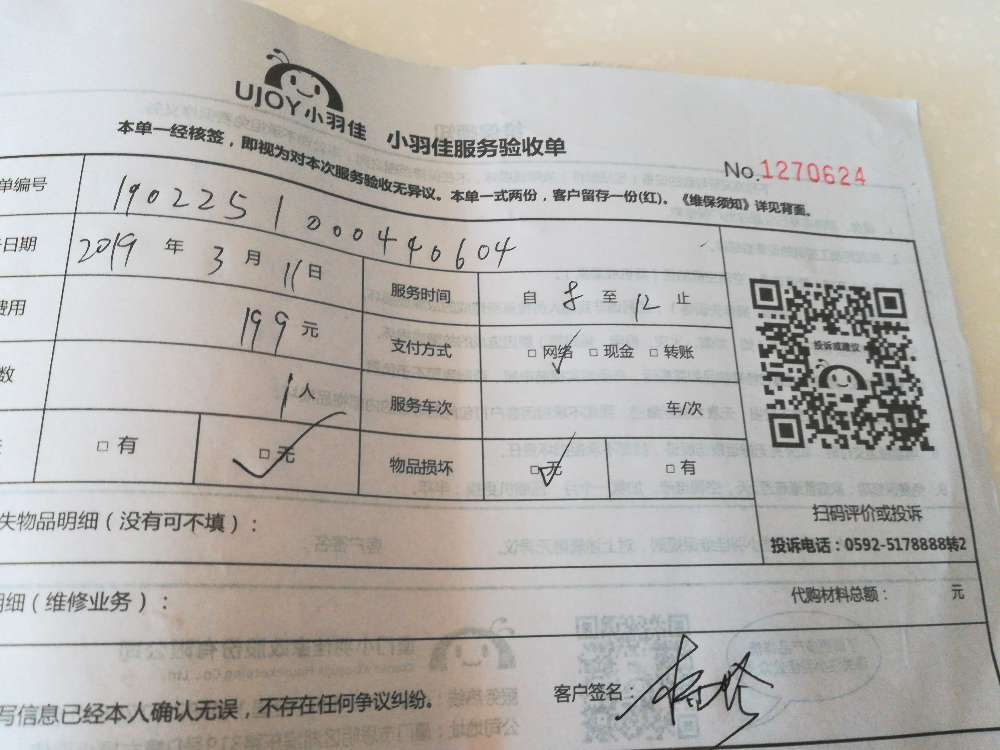 UJOY小羽佳 小羽佳服务验收单
本单一经核签，即视为对本次服务验收无异议。本单一式两份，客户留存一份(红)。《维保须知》详见背面。
No.1270624
单编号 1902251000440604
日期 2019 年 3 月 11 日 服务时间 自 8 至 12 止
费用 199 元 支付方式 □ 网络 □ 现金 □ 转账
数 1 人 服务车次 车/次
□ 有 □ 无 物品损坏 □ 无 □ 有
投诉或建议
扫码评价或投诉
投诉电话：0592-5178888转2
失物品明细（没有可不填）：
明细（维修业务）： 代购材料总额： 元
写信息已经本人确认无误，不存在任何争议纠纷。 客户签名：